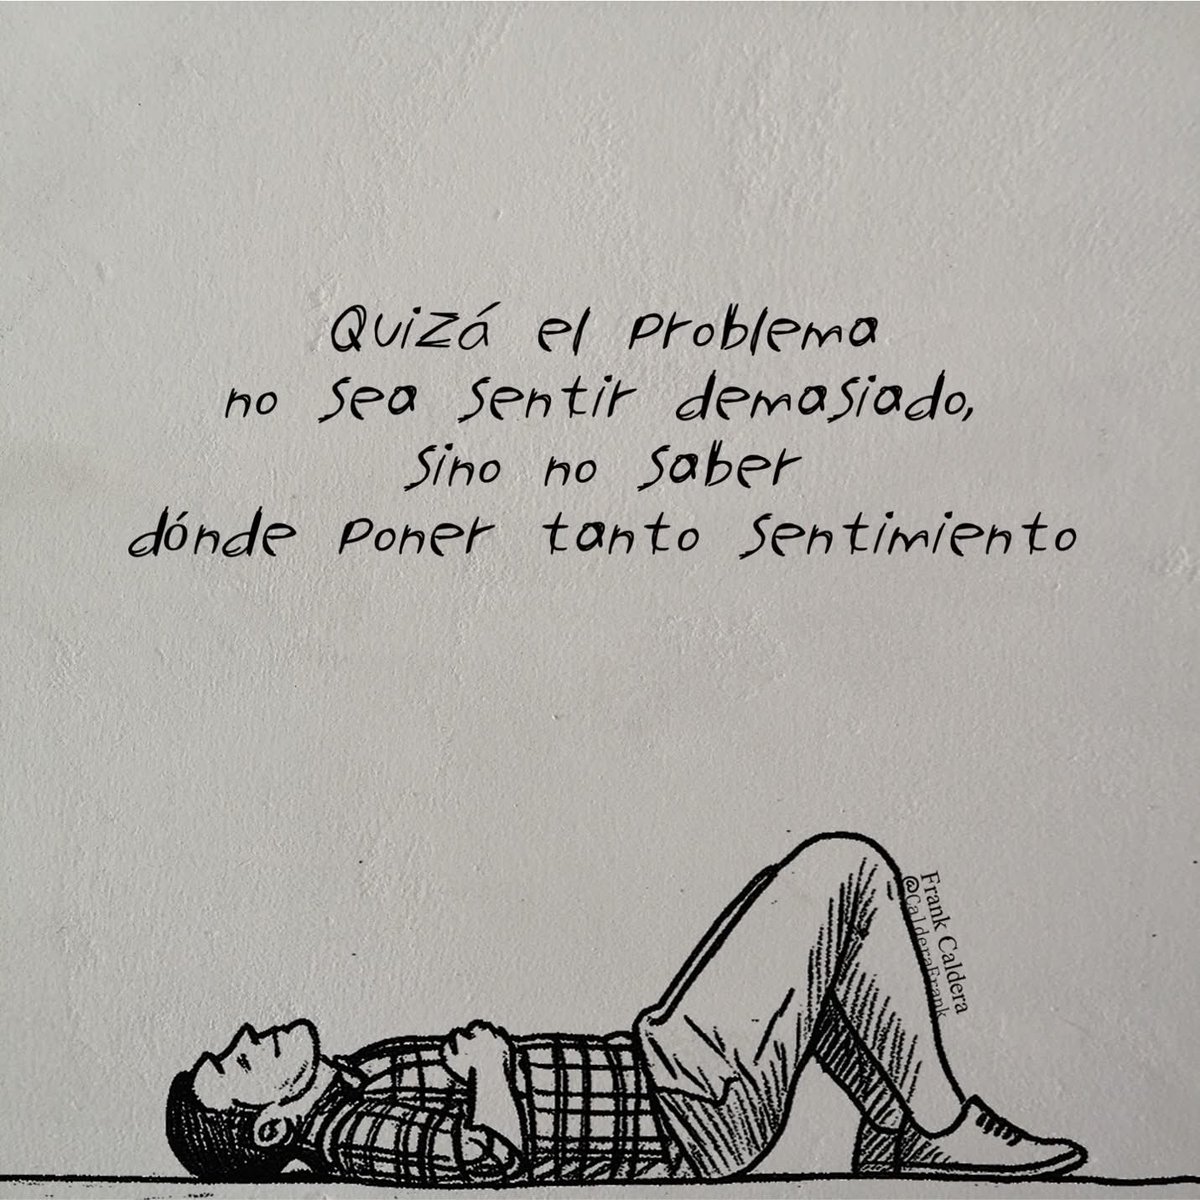 Quizá el problema
no sea sentir demasiado,
sino no saber
dónde poner tanto sentimiento
Frank Caldera
@CalderaFrank